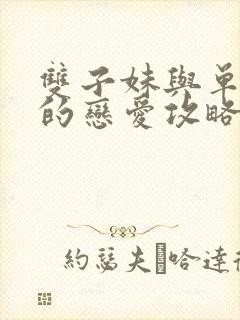 雙子妹與單
的戀愛攻略
約瑟夫 哈達